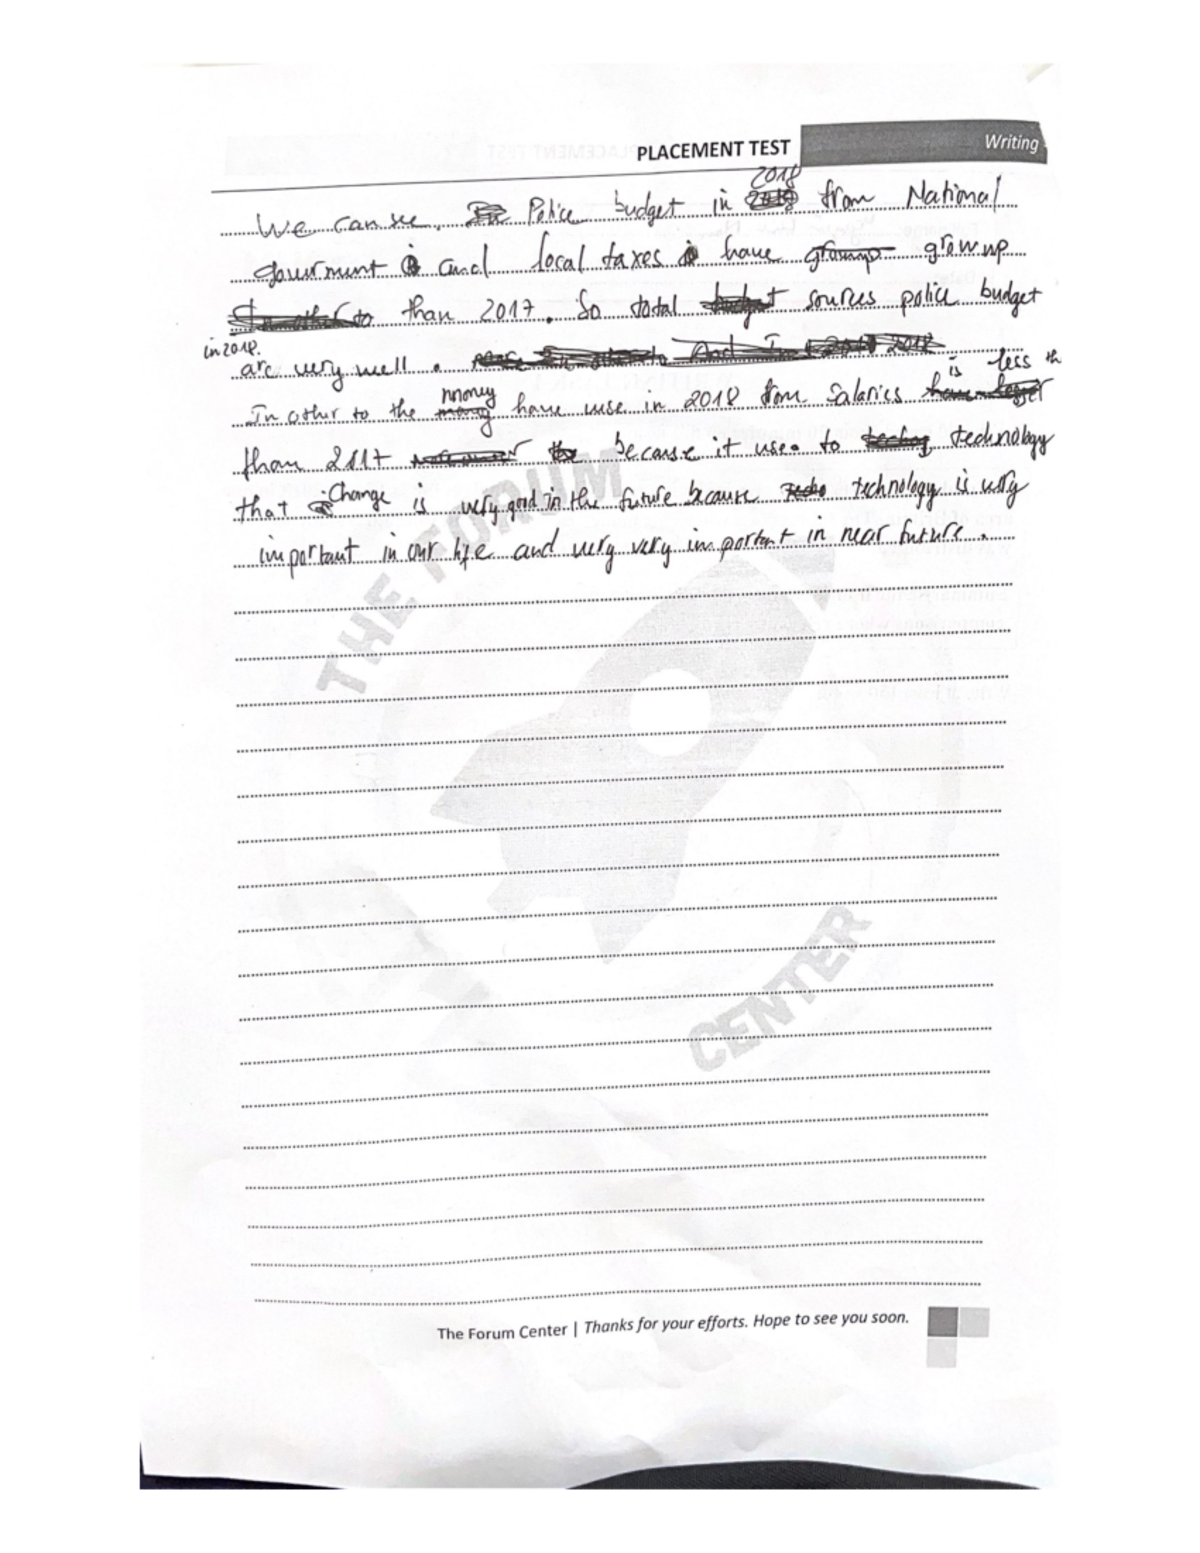 PLACEMENT TEST
Writing
2018
We can see Police budget in from National
gouvrment and local taxes have grow up
than 2017. So total sources police budget
in 2018.
are very well.
is less th
In other to the money have use in 2018 from Salaries
than 2117 because it use to technology
that Change is very good in the future because technology is very
important in our life and very very important in near future.
THE FORUM
CENTER
The Forum Center | Thanks for your efforts. Hope to see you soon.